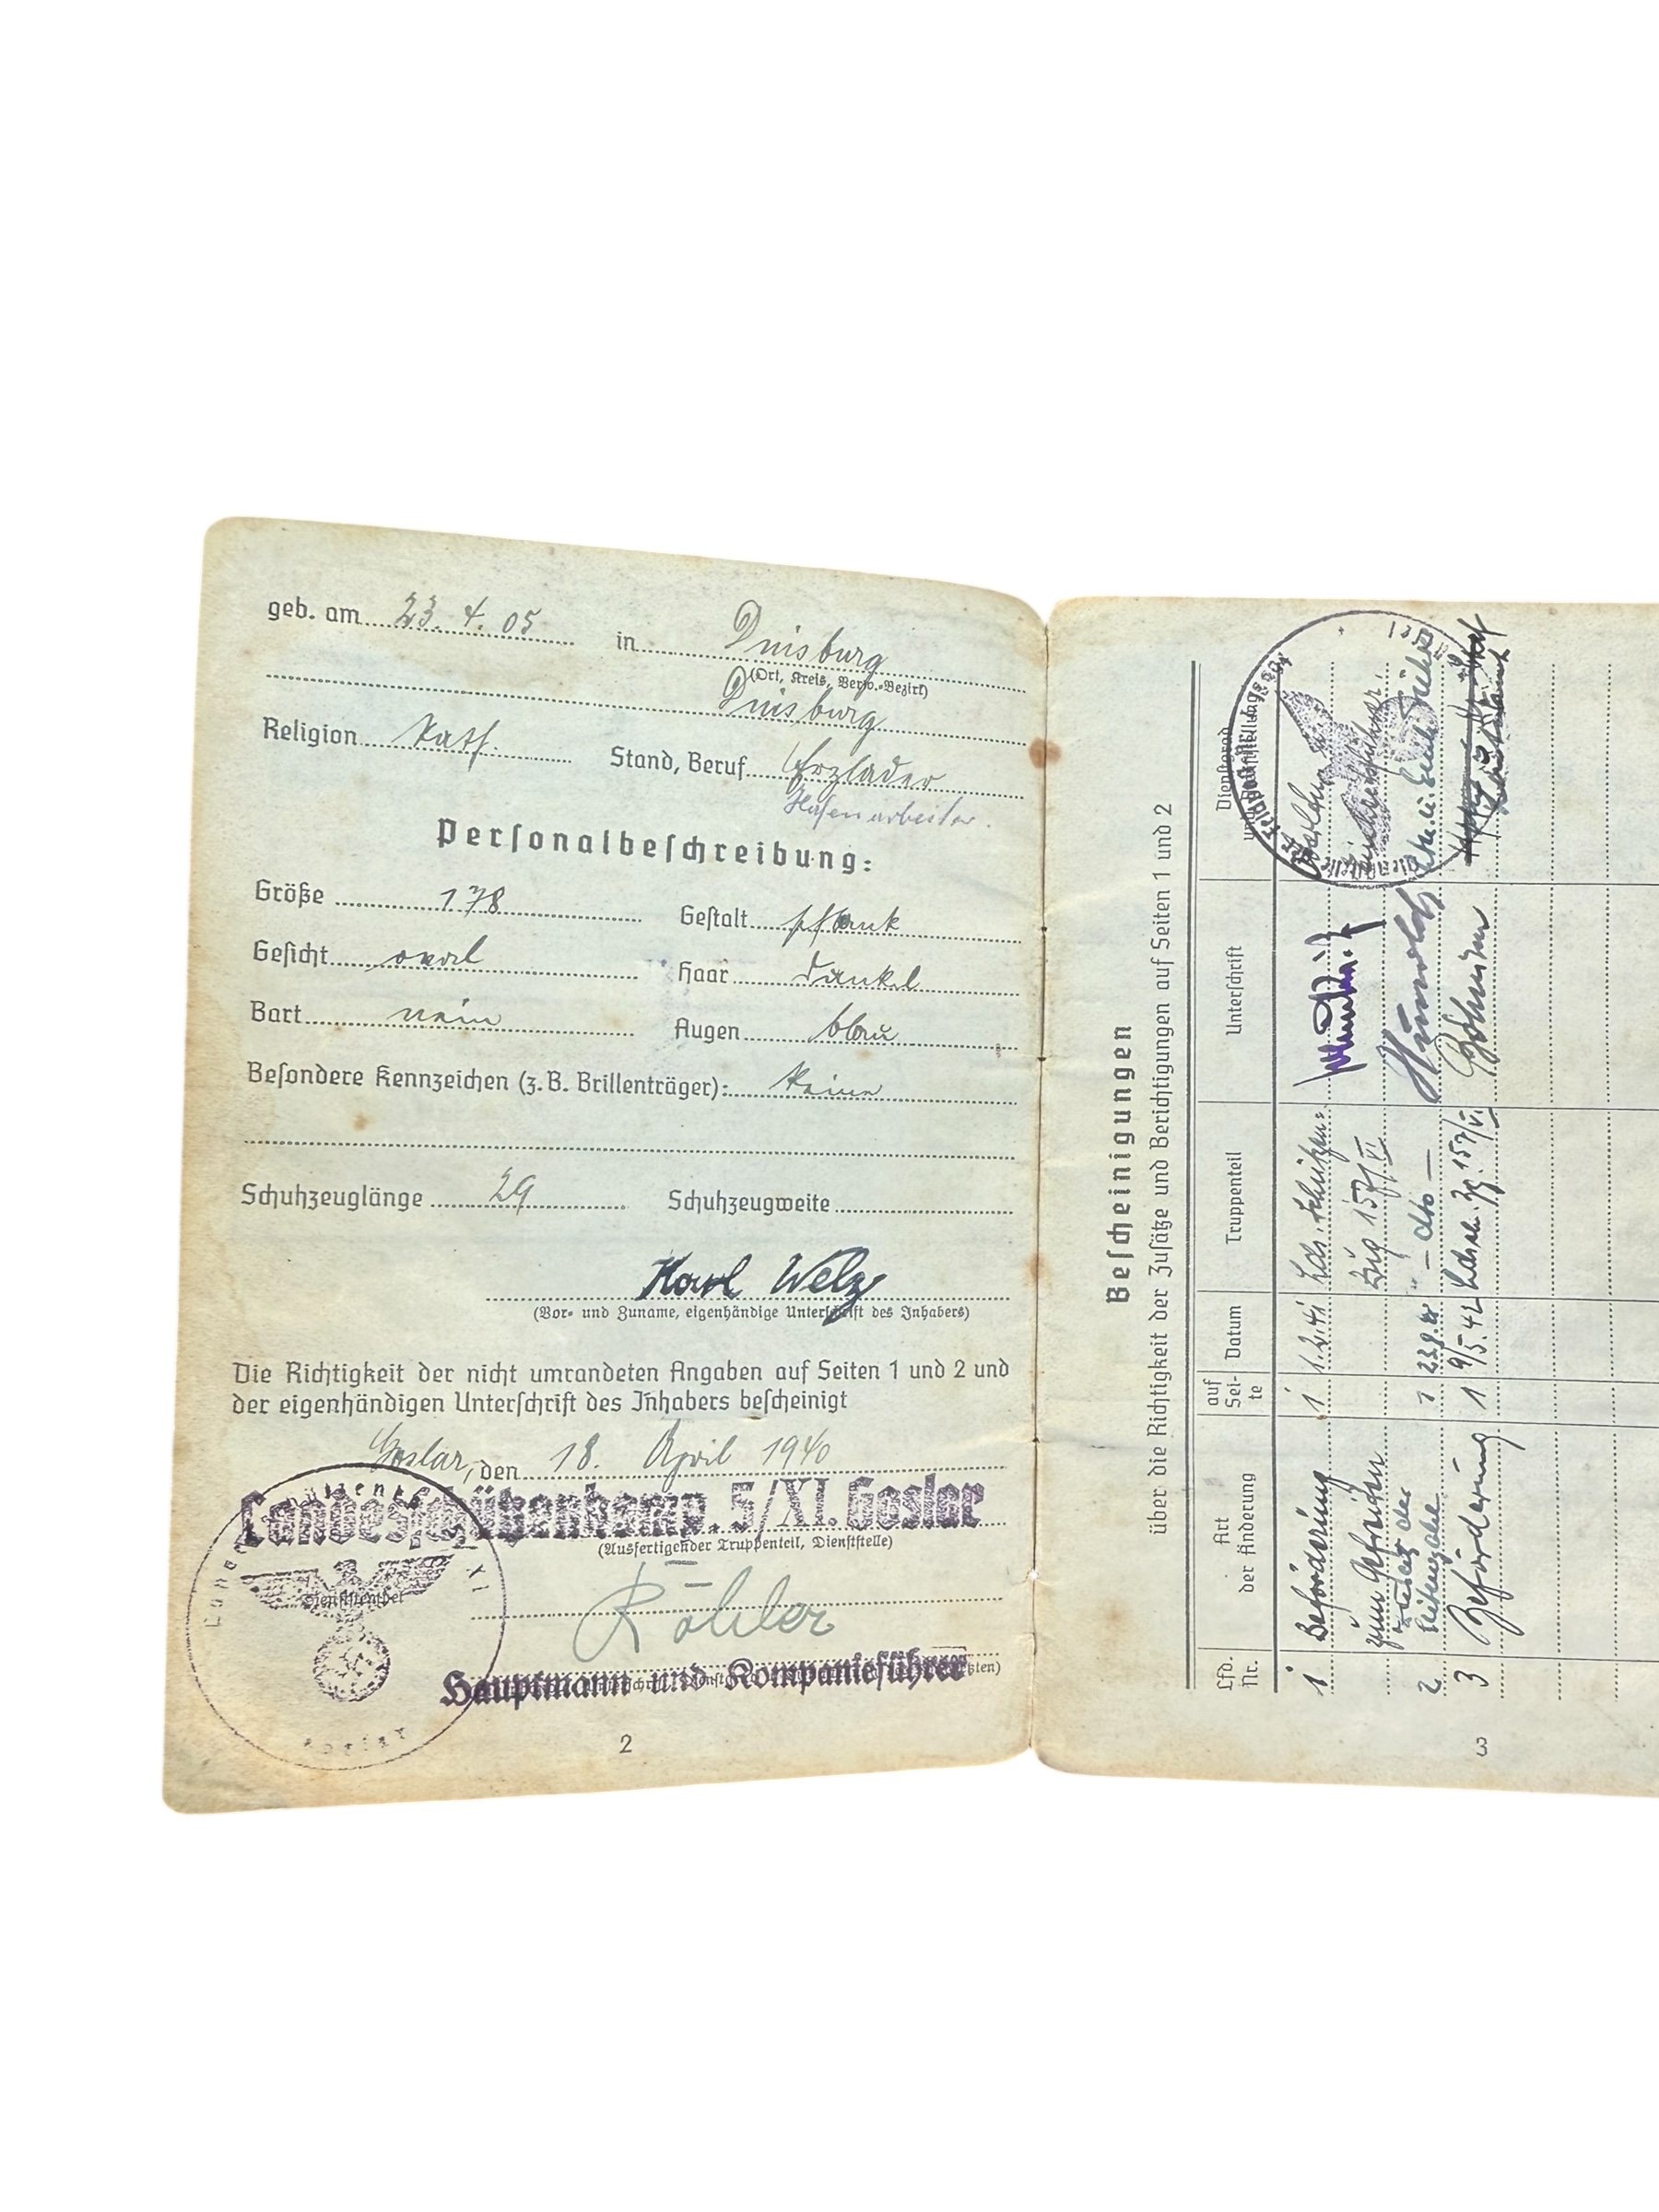 geb. am 23. 4. 05 in Duisburg
(Ort, Kreis, Verw.-Bezirk)
Duisburg
Religion kath. Stand, Beruf Erzlader
Hafenarbeiter.
Personalbeschreibung:
Größe 178 Gestalt schlank
Gesicht oval Haar dunkel
Bart nein Augen blau
Besondere Kennzeichen (z. B. Brillenträger): keine
Schuhzeuglänge 29 Schuhzeugweite
Karl Welz
(Vor- und Zuname, eigenhändige Unterschrift des Inhabers)
Die Richtigkeit der nicht umrandeten Angaben auf Seiten 1 und 2 und
der eigenhändigen Unterschrift des Inhabers bescheinigt
Goslar, den 18. April 1940
Landesschützenkomp. 5/XI. Goslar
(Ausfertigender Truppenteil, Dienststelle)
Dienststempel
Köhler
Hauptmann und Kompanieführer
2
Bescheinigungen
über die Richtigkeit der Zusätze und Berichtigungen auf Seiten 1 und 2
Lfd. Nr. Art der Änderung auf Seite Datum Truppenteil Unterschrift Dienstgrad
1 Beförderung 1 1.2.41 Lds. Schützen-
zum Gefreiten Zug 157/VI
2 1 - dto -
3 Beförderung 1 9/5.42 157/VI
3